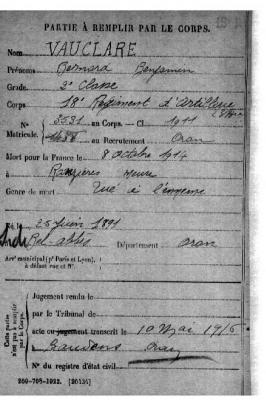 PARTIE À REMPLIR PAR LE CORPS.
Nom VAUCLARE
Prénoms Bernard Benjamin
Grade 2e Classe
Corps 18e Régiment d'Artillerie
N° 3531 au Corps. — Cl 1911
Matricule. 1488 au Recrutement Oran
Mort pour la France le 8 octobre 1914
à Ranzières Meuse
Genre de mort Tué à l'ennemi
Né le 25 Juin 1891
à Sidi Bel-abbès Département Oran
Arrt municipal (pr Paris et Lyon),
à défaut rue et N°.
Cette partie
n'est pas à remplir
par le Corps.
Jugement rendu le
par le Tribunal de
acte ou jugement transcrit le 10 Mai 1916
à Oran
N° du registre d'état civil
269-708-1922. [26434]